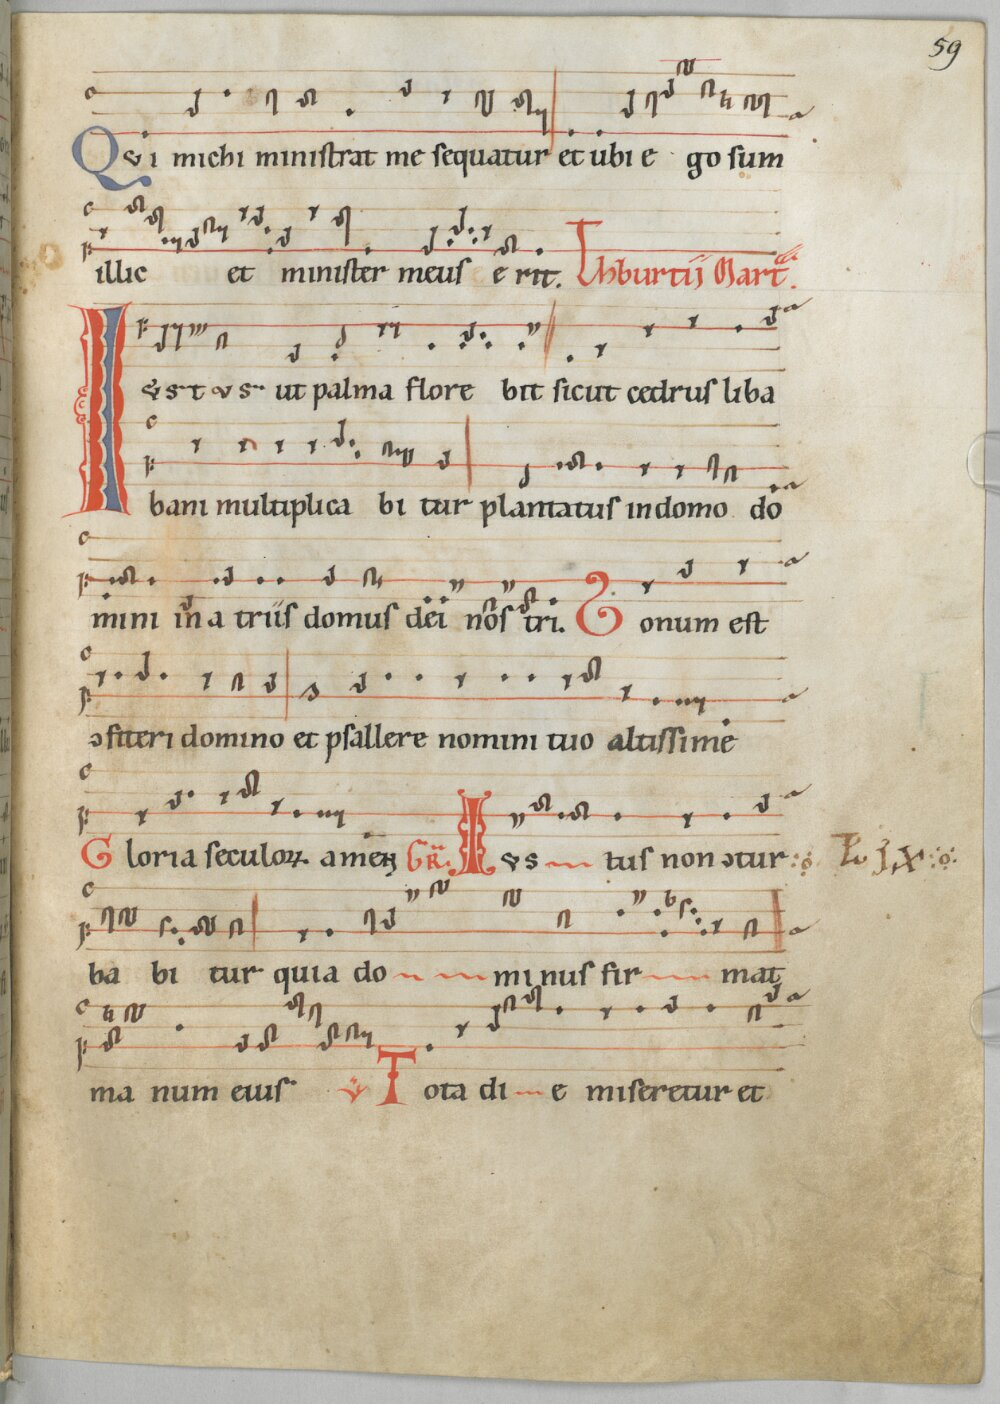 59
Qvi michi ministrat me sequatur et ubi e go sum
illic et minister meus e rit. Thburtij Mart.
Ivstvs ut palma flore bit sicut cedrus liba
bani multiplica bi tur plantatus in domo do
mini in a triis domus dei nos tri. Bonum est
ↄfiteri domino et psallere nomini tuo altissime
Gloria seculoꝝ amen GR. Ivs tus non ↄtur
ba bi tur quia do mi nus fir mat
ma num eius ℣ Tota di e miseretur et